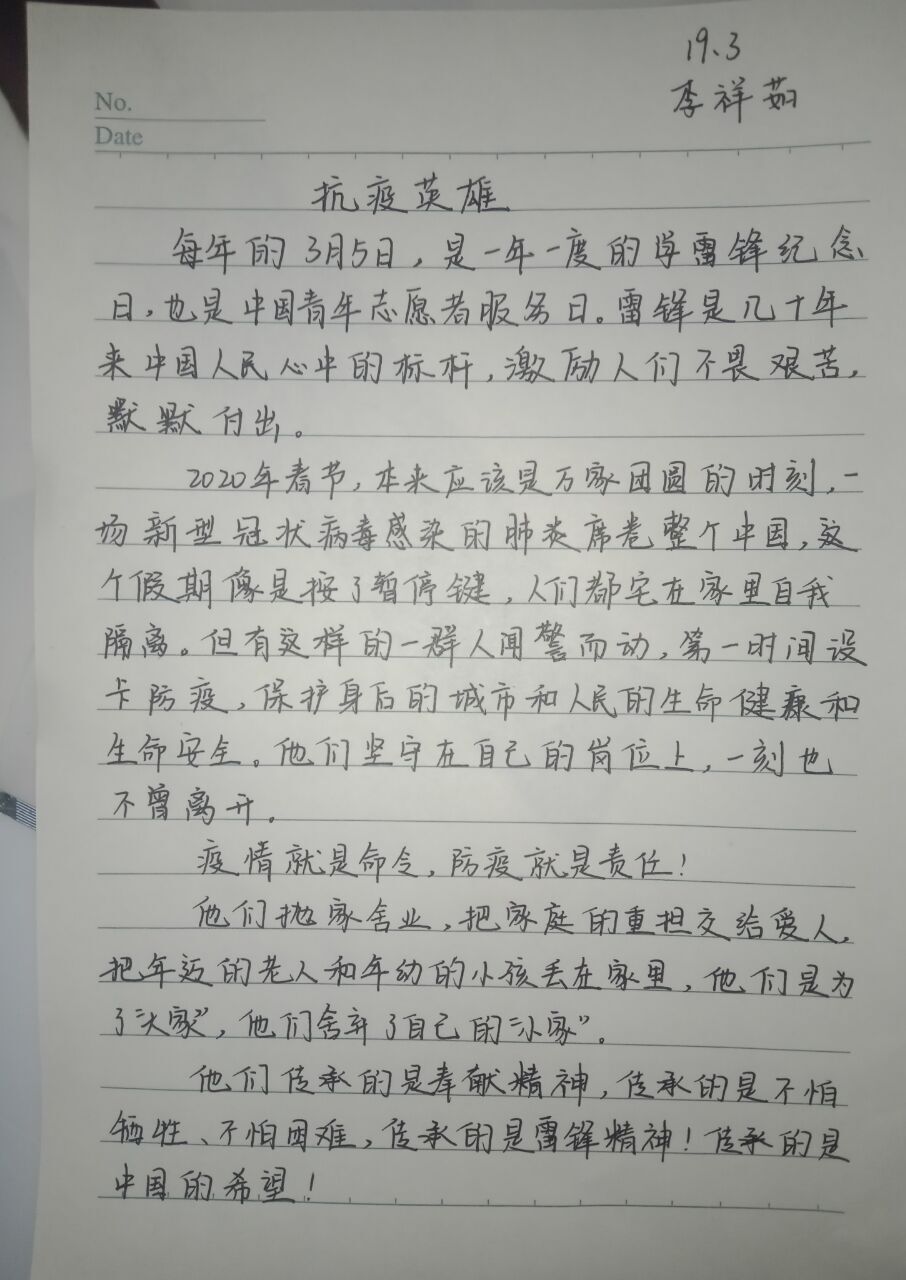 19.3
李祥茹
No.
Date
抗疫英雄
每年的3月5日，是一年一度的学雷锋纪念
日，也是中国青年志愿者服务日。雷锋是几十年
来中国人民心中的标杆，激励人们不畏艰苦，
默默付出。
2020年春节，本来应该是万家团圆的时刻，一
场新型冠状病毒感染的肺炎席卷整个中国，这
个假期像是按了暂停键，人们都宅在家里自我
隔离。但有这样的一群人闻警而动，第一时间设
卡防疫，保护身后的城市和人民的生命健康和
生命安全。他们坚守在自己的岗位上，一刻也
不曾离开。
疫情就是命令，防疫就是责任！
他们抛家舍业，把家庭的重担交给爱人，
把年迈的老人和年幼的小孩丢在家里，他们是为
了“大家”，他们舍弃了自己的“小家”。
他们传承的是奉献精神，传承的是不怕
牺牲、不怕困难，传承的是雷锋精神！传承的是
中国的希望！